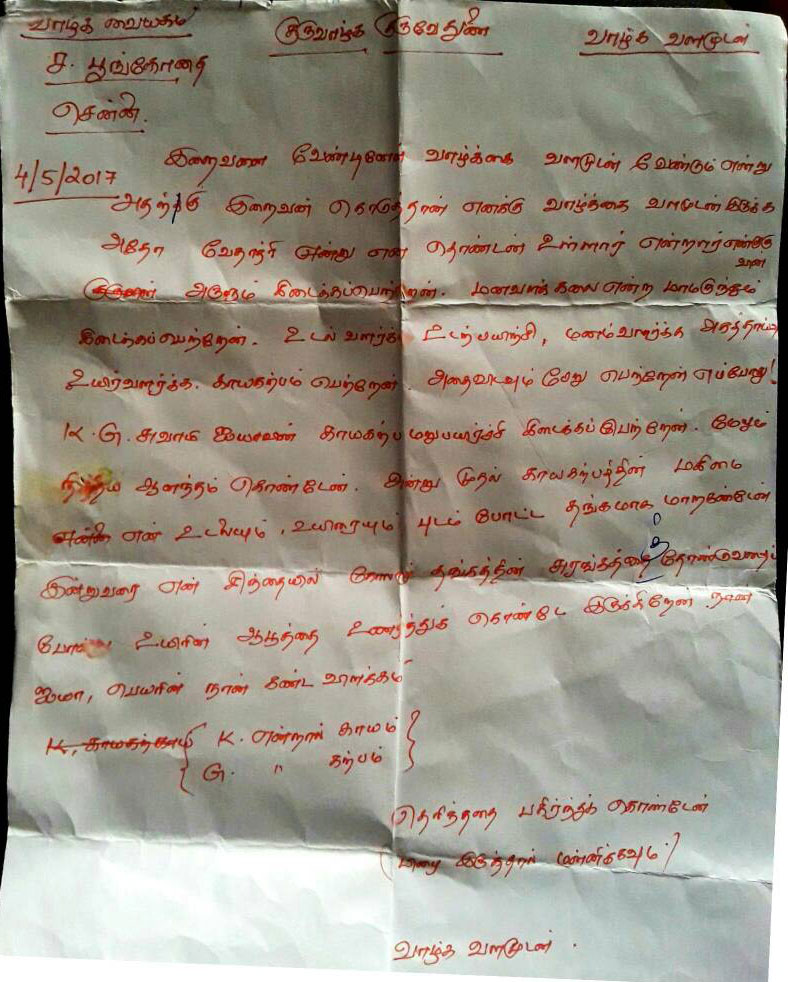 வாழ்க வையகம் குருவாழ்க குருவேதுணை வாழ்க வளமுடன்
ச. பூங்கோதை
சென்னை.
4/5/2017
இறைவனை வேண்டினேன் வாழ்க்கை வளமுடன் வேண்டும் என்று
அதற்கு இறைவன் கொடுத்தான் எனக்கு வாழ்க்கை வளமுடன் இருக்க
அதோ வேதாத்ரி என்று என் தொண்டன் உள்ளார் என்றார் எனக்கு
அருளும் கிடைக்கப்பெற்றேன். மனவளக்கலை என்ற மாமருந்தும்
கிடைக்கப்பெற்றேன். உடல் வளர்க்க உடற்பயிற்சி, மனம்வளர்க்க அகத்தாய்வு
உயிர்வளர்க்க. காயகற்பம் பெற்றேன். அதைவிடவும் மேலு பெற்றேன் எப்போது!
K. G. சுவாமி ஐயாவின் காயகற்ப மறுபயிற்ச்சி கிடைக்கப்பெற்றேன். மேலும்
நித்தம் ஆனந்தம் கொண்டேன். அன்று முதல் காயகற்பத்தின் மகிமை
என் உடலையும், உயிரையும் புடம் போட்ட தங்கமாக மாறகண்டேன்
இன்றுவரை என் சிந்தையில் கோலார் தங்கத்தின் சுரங்கத்தை தோண்டுவதைப்
போன்று உயிரின் ஆழத்தை உணர்ந்துக் கொண்டே இருக்கிறேன். நான்
ஐயா, பெயரின் நான் கண்ட விளக்கம்
K. காயகற்காய் { K. என்றால் காயம் }
{ G. " கற்பம் }
தெரிந்ததை பகிர்ந்துக் கொண்டேன்
(பிழை இருந்தால் மன்னிக்கவும்.)
வாழ்க வளமுடன்.